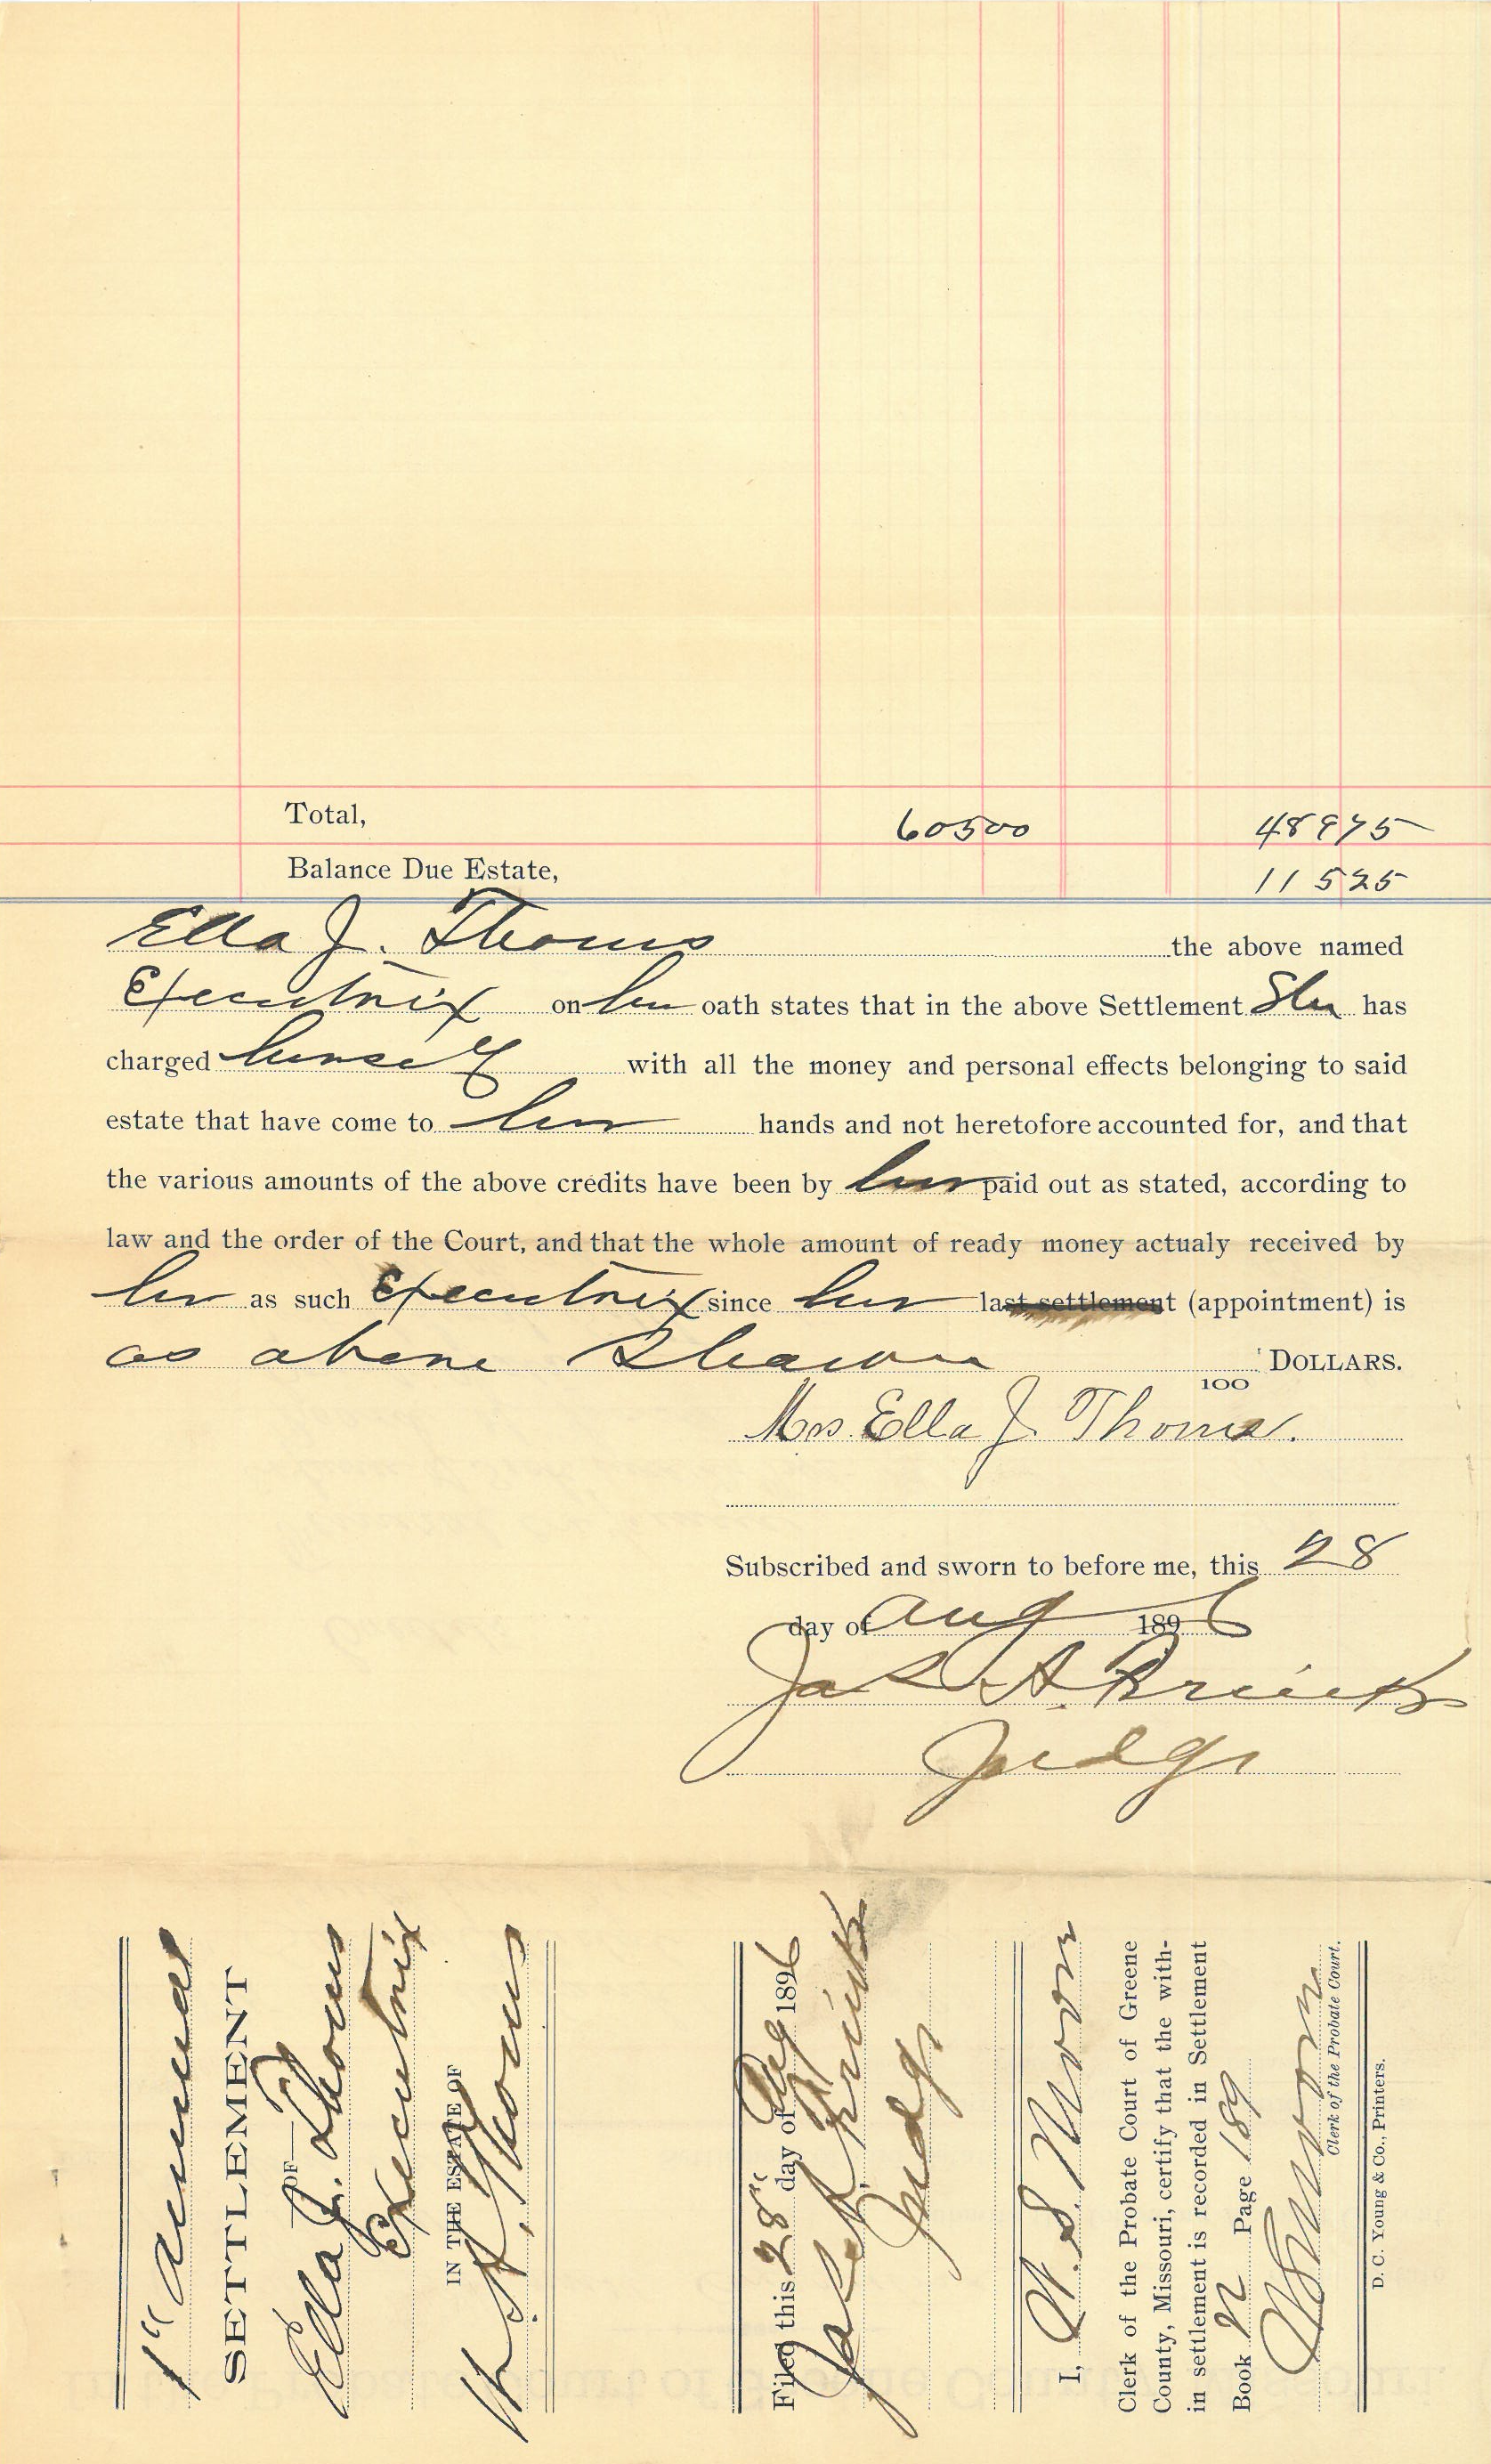 Total, 60500 48975
Balance Due Estate, 11525
Ella J. Thoms the above named
Executrix on her oath states that in the above Settlement She has
charged herself with all the money and personal effects belonging to said
estate that have come to her hands and not heretofore accounted for, and that
the various amounts of the above credits have been by her paid out as stated, according to
law and the order of the Court, and that the whole amount of ready money actualy received by
her as such Executrix since her last settlement (appointment) is
as above Shown DOLLARS.
100
Mrs. Ella J. Thoms.
Subscribed and sworn to before me, this 28
day of Aug 1896
Jas A. Prink
Judge
1" annual
SETTLEMENT
OF
Ella J. Thoms
Executrix
IN THE ESTATE OF
A. Thoms
Filed this 28" day of Aug 1896
Jas A. Prink
Judge
I, S. Moore
Clerk of the Probate Court of Greene
County, Missouri, certify that the with-
in settlement is recorded in Settlement
Book N Page 189
Clerk of the Probate Court.
D. C. Young & Co., Printers.